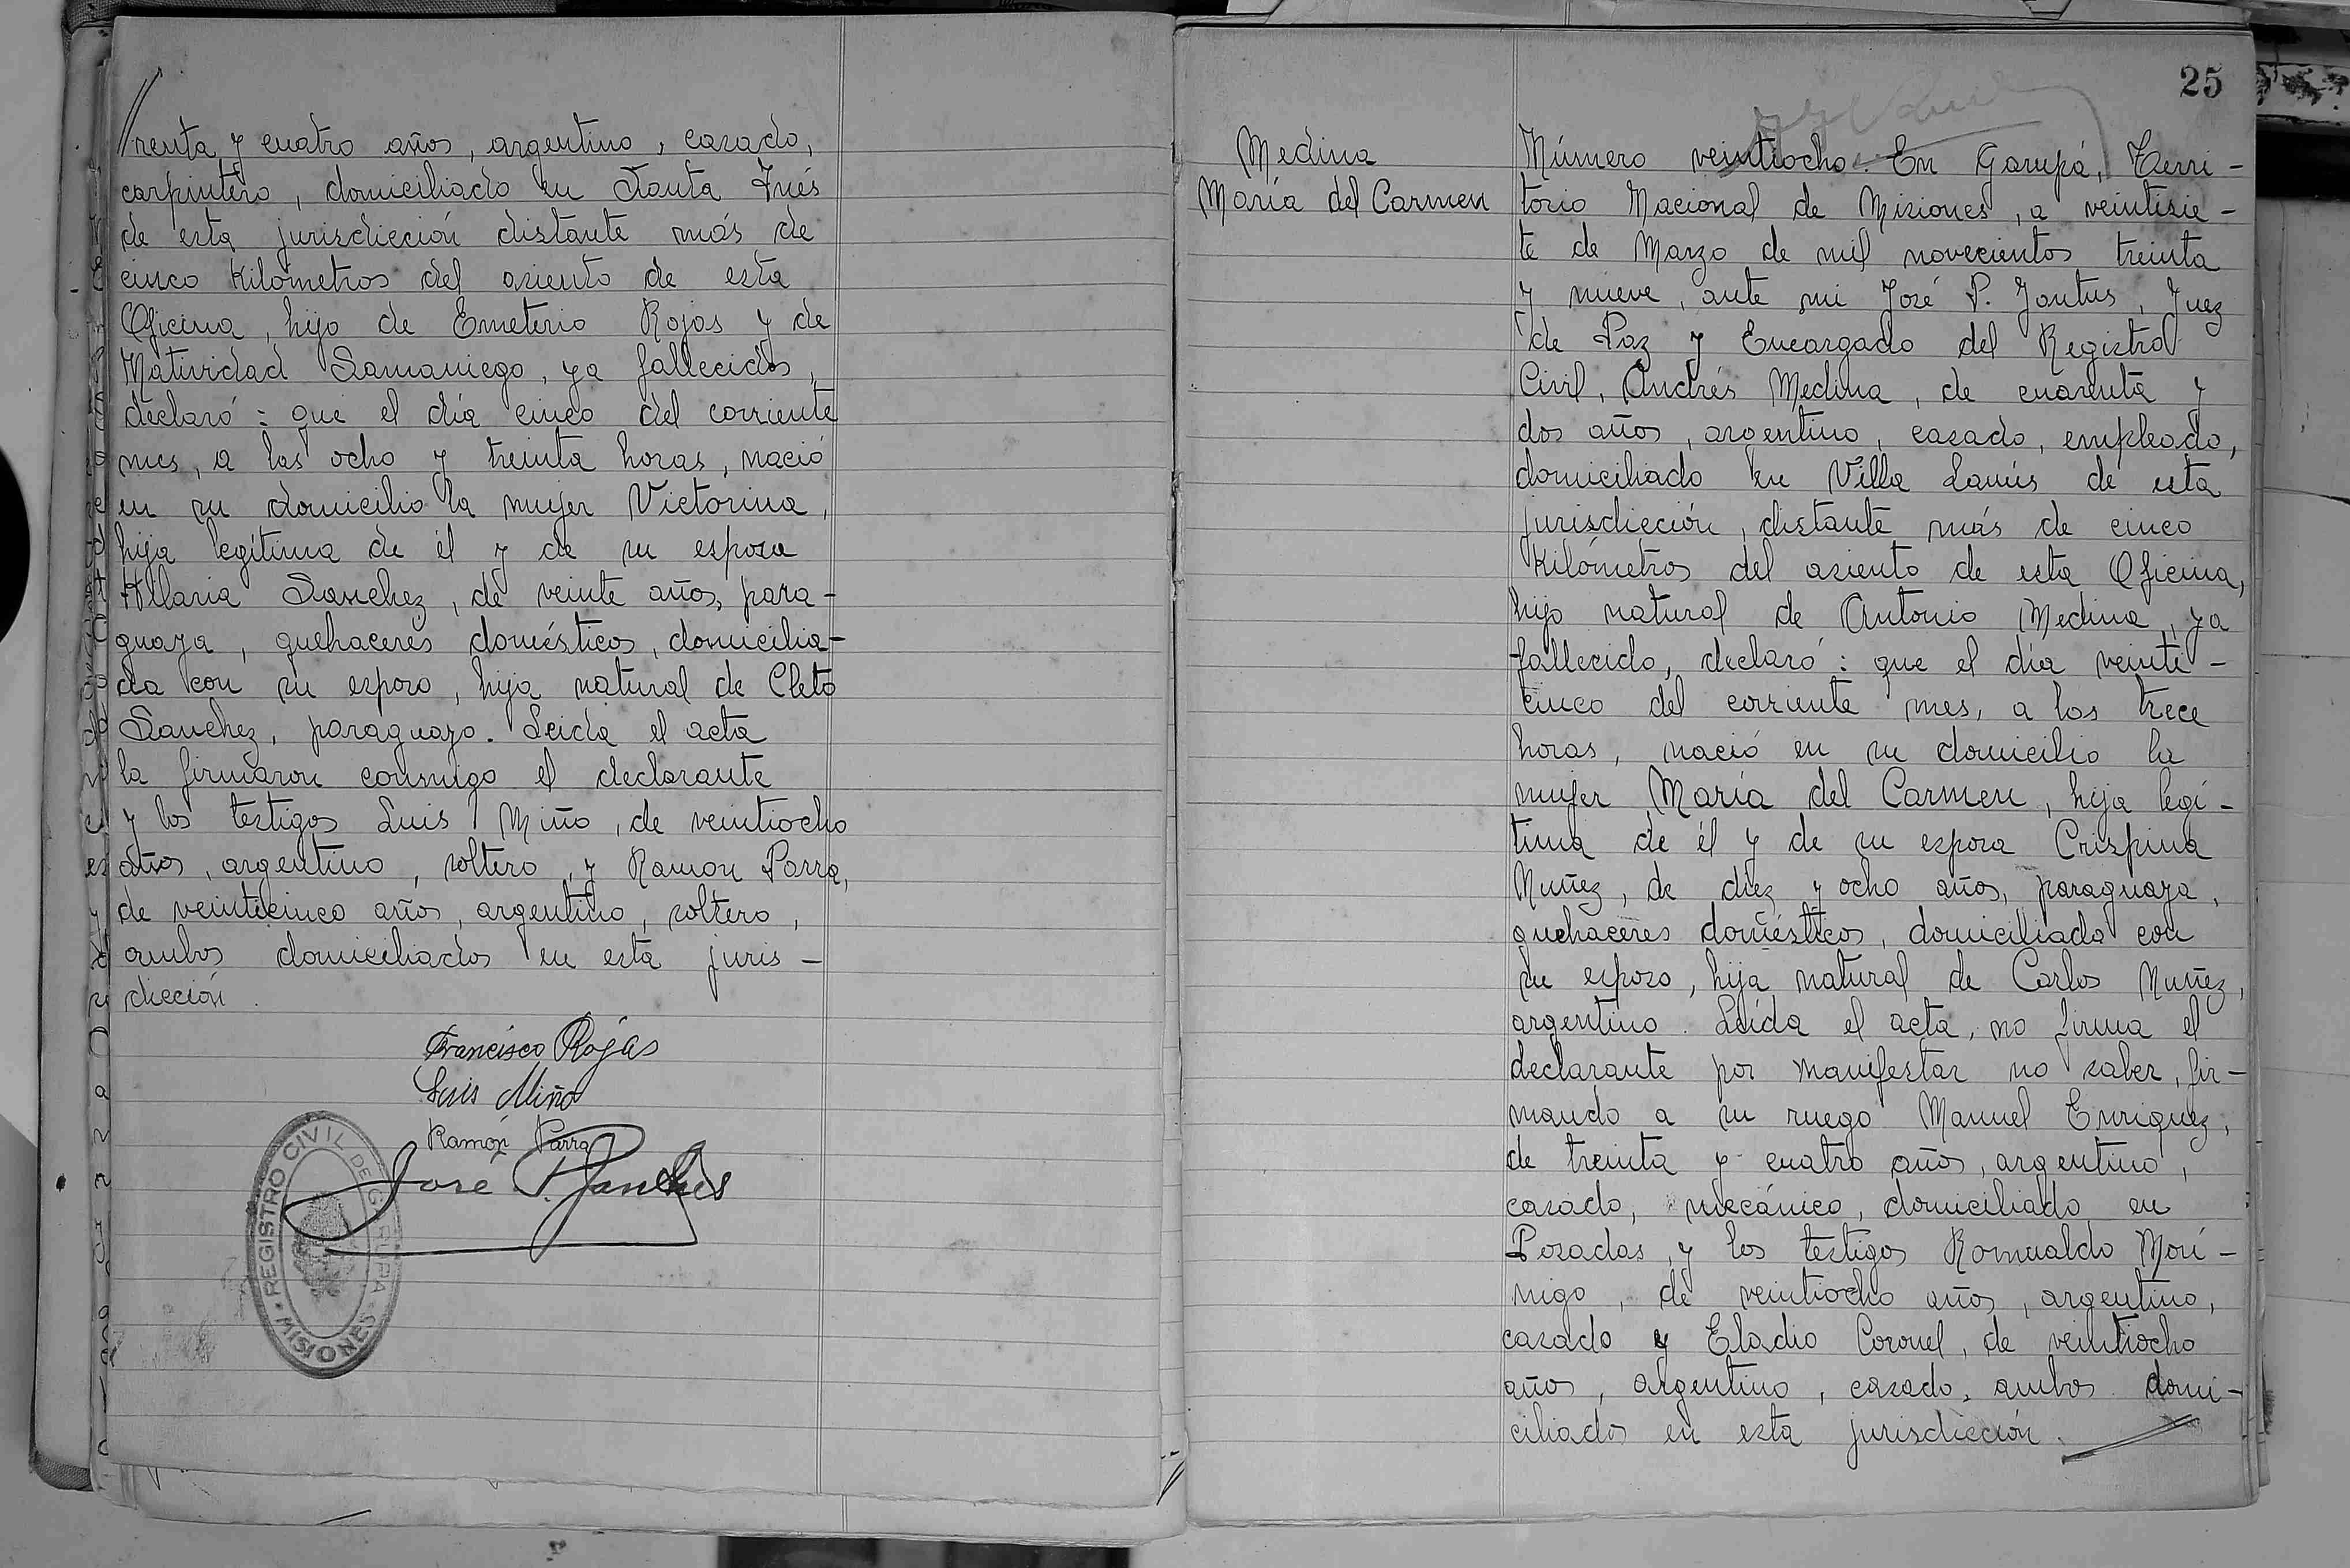 renta y cuatro años, argentino, casado,
carpintero, domiciliado en Santa Inés
de esta jurisdicción distante más de
cinco kilómetros del asiento de esta
Oficina, hijo de Emeterio Rojas y de
Natividad Samaniego, ya fallecidos,
declaró: que el día cinco del corriente
mes, a las ocho y treinta horas, nació
en su domicilio la mujer Victorina,
hija legítima de él y de su esposa
Hilaria Sanchez, de veinte años, para-
guaya, quehaceres domésticos, domicilia-
da con su esposo, hija natural de Cleto
Sanchez, paraguayo. Leida el acta
la firmaron conmigo el declarante
y los testigos Luis Miño, de veintiocho
años, argentino, soltero, y Ramon Parra,
de veinticinco años, argentino, soltero,
ambos domiciliados en esta juris-
dicción.
Francisco Rojas
Luis Miño
Ramón Parra
José P. Jantus
REGISTRO CIVIL DE GARUPA
MISIONES
25
Medina
María del Carmen
Número veintiocho. En Garupá, Terri-
torio Nacional de Misiones, a veintisie-
te de Marzo de mil novecientos treinta
y nueve, ante mi José P. Jantus, Juez
de Paz y Encargado del Registro
Civil, Andrés Medina, de cuarenta y
dos años, argentino, casado, empleado,
domiciliado en Villa Lanús de esta
jurisdicción, distante más de cinco
kilómetros del asiento de esta Oficina,
hijo natural de Antonio Medina, ya
fallecido, declaró: que el día veinti-
cinco del corriente mes, a las trece
horas, nació en su domicilio la
mujer María del Carmen, hija legí-
tima de él y de su esposa Crispina
Nuñez, de diez y ocho años, paraguaya,
quehaceres domésticos, domiciliada con
su esposo, hija natural de Carlos Nuñez,
argentino. Leída el acta, no firma el
declarante por manifestar no saber, fir-
mando a su ruego Manuel Enriquez,
de treinta y cuatro años, argentino,
casado, mecánico, domiciliado en
Posadas, y los testigos Romualdo Morí-
nigo, de veintiocho años, argentino,
casado y Eladio Coronel, de veintiocho
años, argentino, casado, ambos domi-
ciliados en esta jurisdicción.